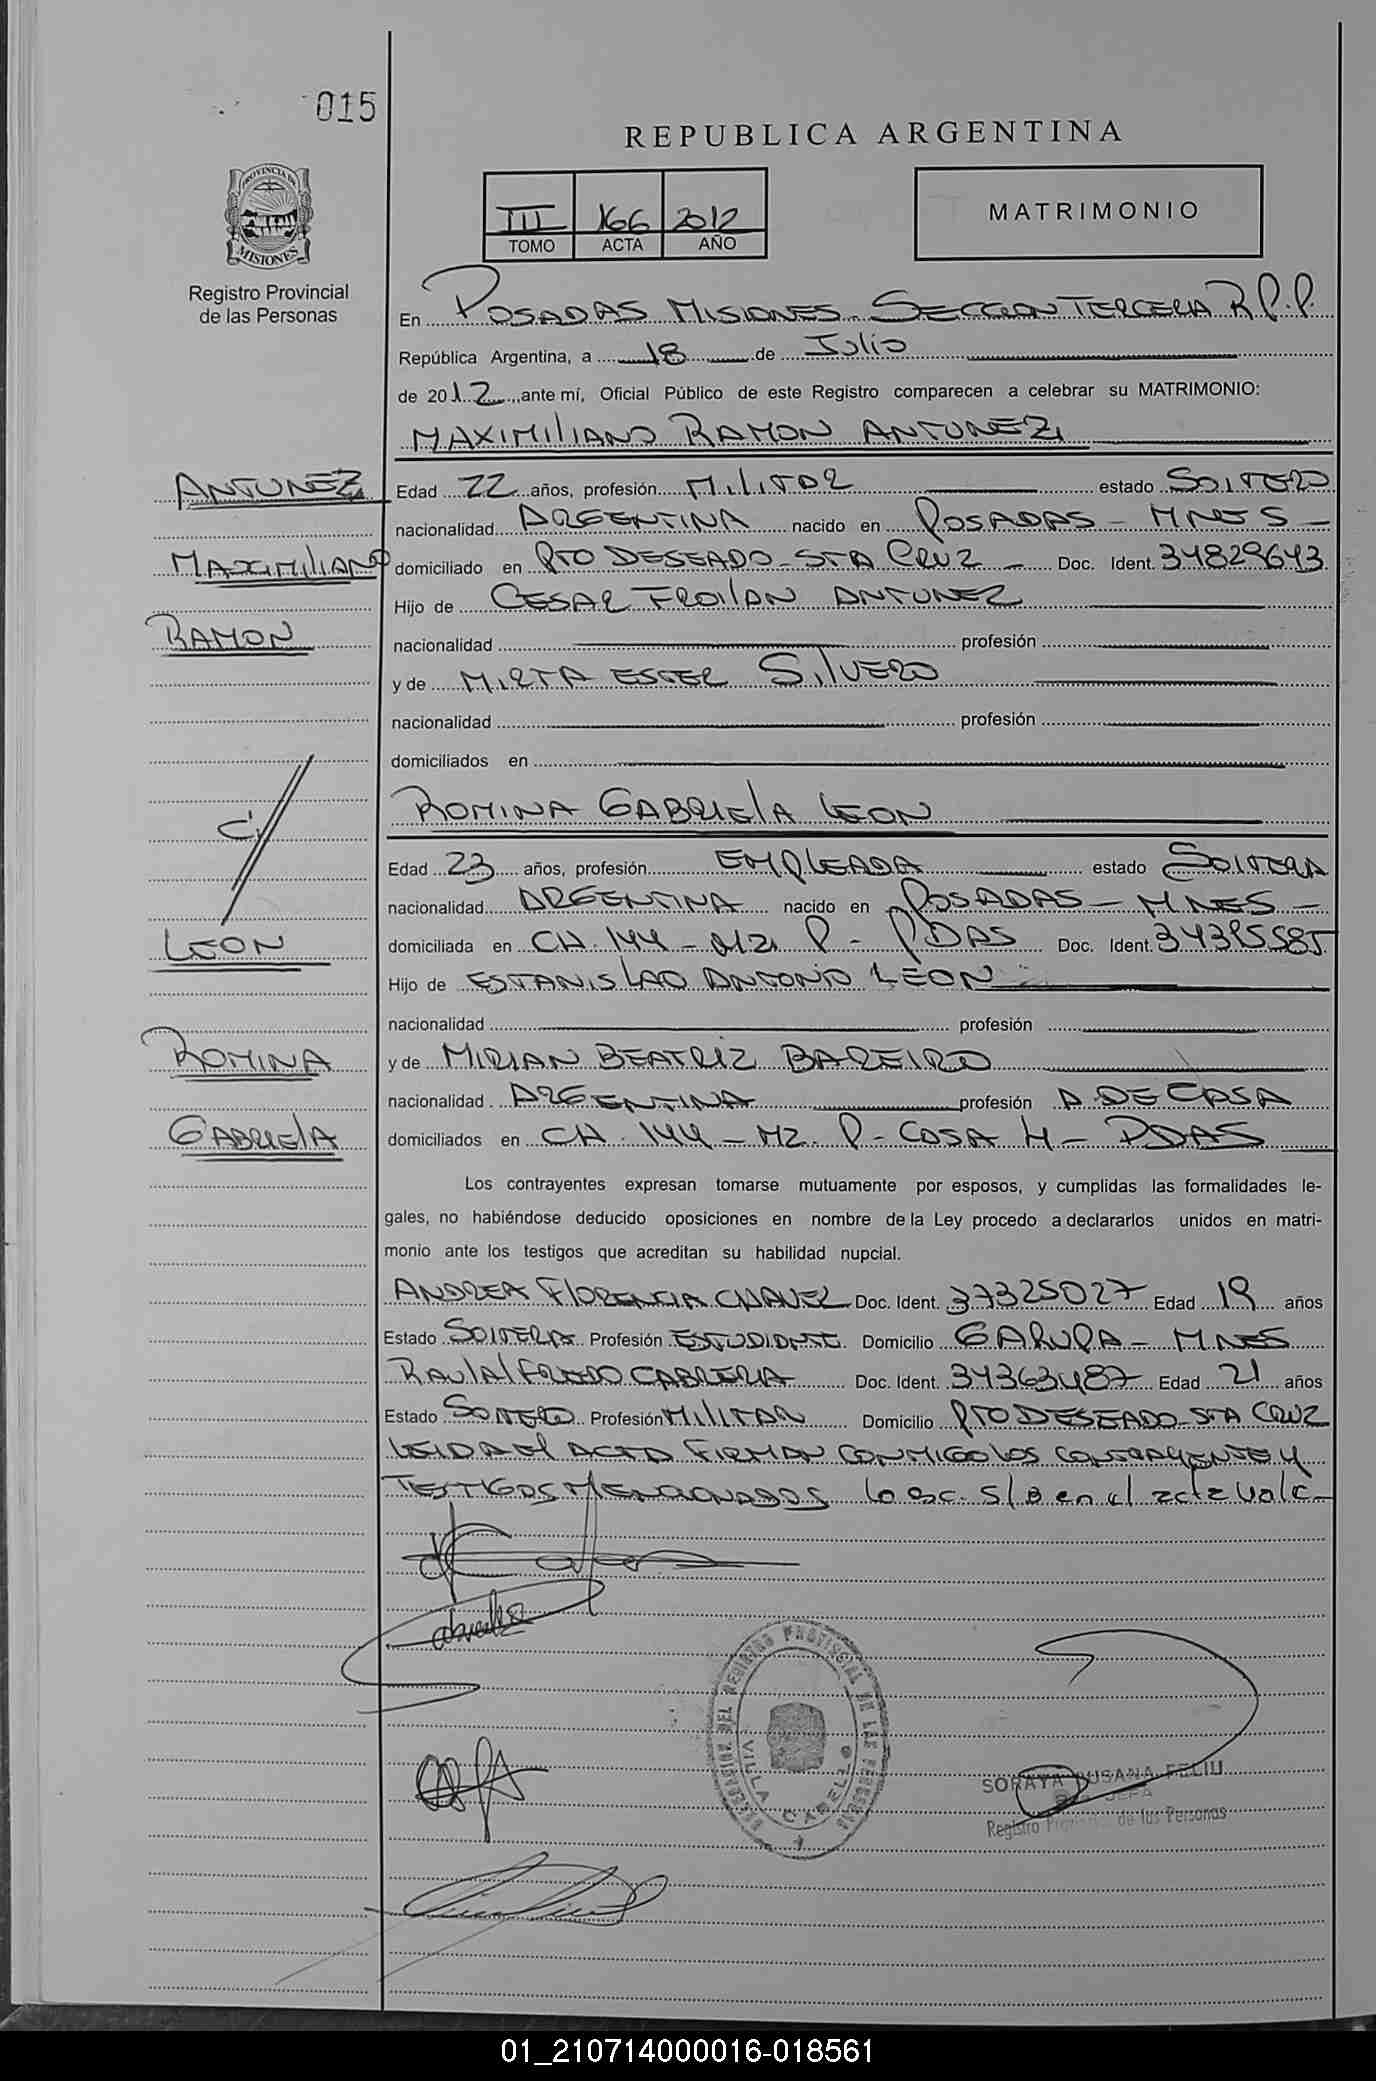 015
REPUBLICA ARGENTINA
PROVINCIA DE
MISIONES
Registro Provincial
de las Personas
III 166 2012
TOMO ACTA AÑO
MATRIMONIO
En POSADAS MISIONES SECCION TERCERA R.P.P.
República Argentina, a 18 de Julio
de 2012, ante mí, Oficial Público de este Registro comparecen a celebrar su MATRIMONIO:
MAXIMILIANO RAMON ANTUNEZ
ANTUNEZ
Edad 22 años, profesión MILITAR estado SOLTERO
nacionalidad ARGENTINA nacido en POSADAS - MNES -
MAXIMILIANO
domiciliado en PTO DESEADO - STA CRUZ - Doc. Ident. 34829643
Hijo de CESAR FROILAN ANTUNEZ
RAMON
nacionalidad profesión
y de MIRTA ESTER SILVERO
nacionalidad profesión
domiciliados en
C/
ROMINA GABRIELA LEON
Edad 23 años, profesión EMPLEADA estado SOLTERA
nacionalidad ARGENTINA nacido en POSADAS - MNES -
LEON
domiciliada en CH. 144 - MZ P - PDAS Doc. Ident. 34395585
Hijo de ESTANISLAO ANTONIO LEON
nacionalidad profesión
ROMINA
y de MIRIAN BEATRIZ BAREIRO
nacionalidad ARGENTINA profesión A DE CASA
GABRIELA
domiciliados en CH. 144 - MZ. P - CASA 4 - PDAS
Los contrayentes expresan tomarse mutuamente por esposos, y cumplidas las formalidades le-
gales, no habiéndose deducido oposiciones en nombre de la Ley procedo a declararlos unidos en matri-
monio ante los testigos que acreditan su habilidad nupcial.
ANDREA FLORENCIA CHAVEZ Doc. Ident. 37325027 Edad 19 años
Estado SOLTERA Profesión ESTUDIANTE Domicilio GARUPA - MNES
RAUL ALFREDO CABRERA Doc. Ident. 34363487 Edad 21 años
Estado SOLTERO Profesión MILITAR Domicilio PTO DESEADO - STA CRUZ
LEIDA EL ACTA FIRMAN CONMIGO LOS CONTRAYENTE Y
TESTIGOS MENCIONADOS lo esc. s/b en el acta vale -
DELEGACION DEL REGISTRO PROVINCIAL DE LAS PERSONAS
VILLA CABELLO
SORAYA SUSANA FELIU
JEFA
Registro de las Personas
01_210714000016-018561